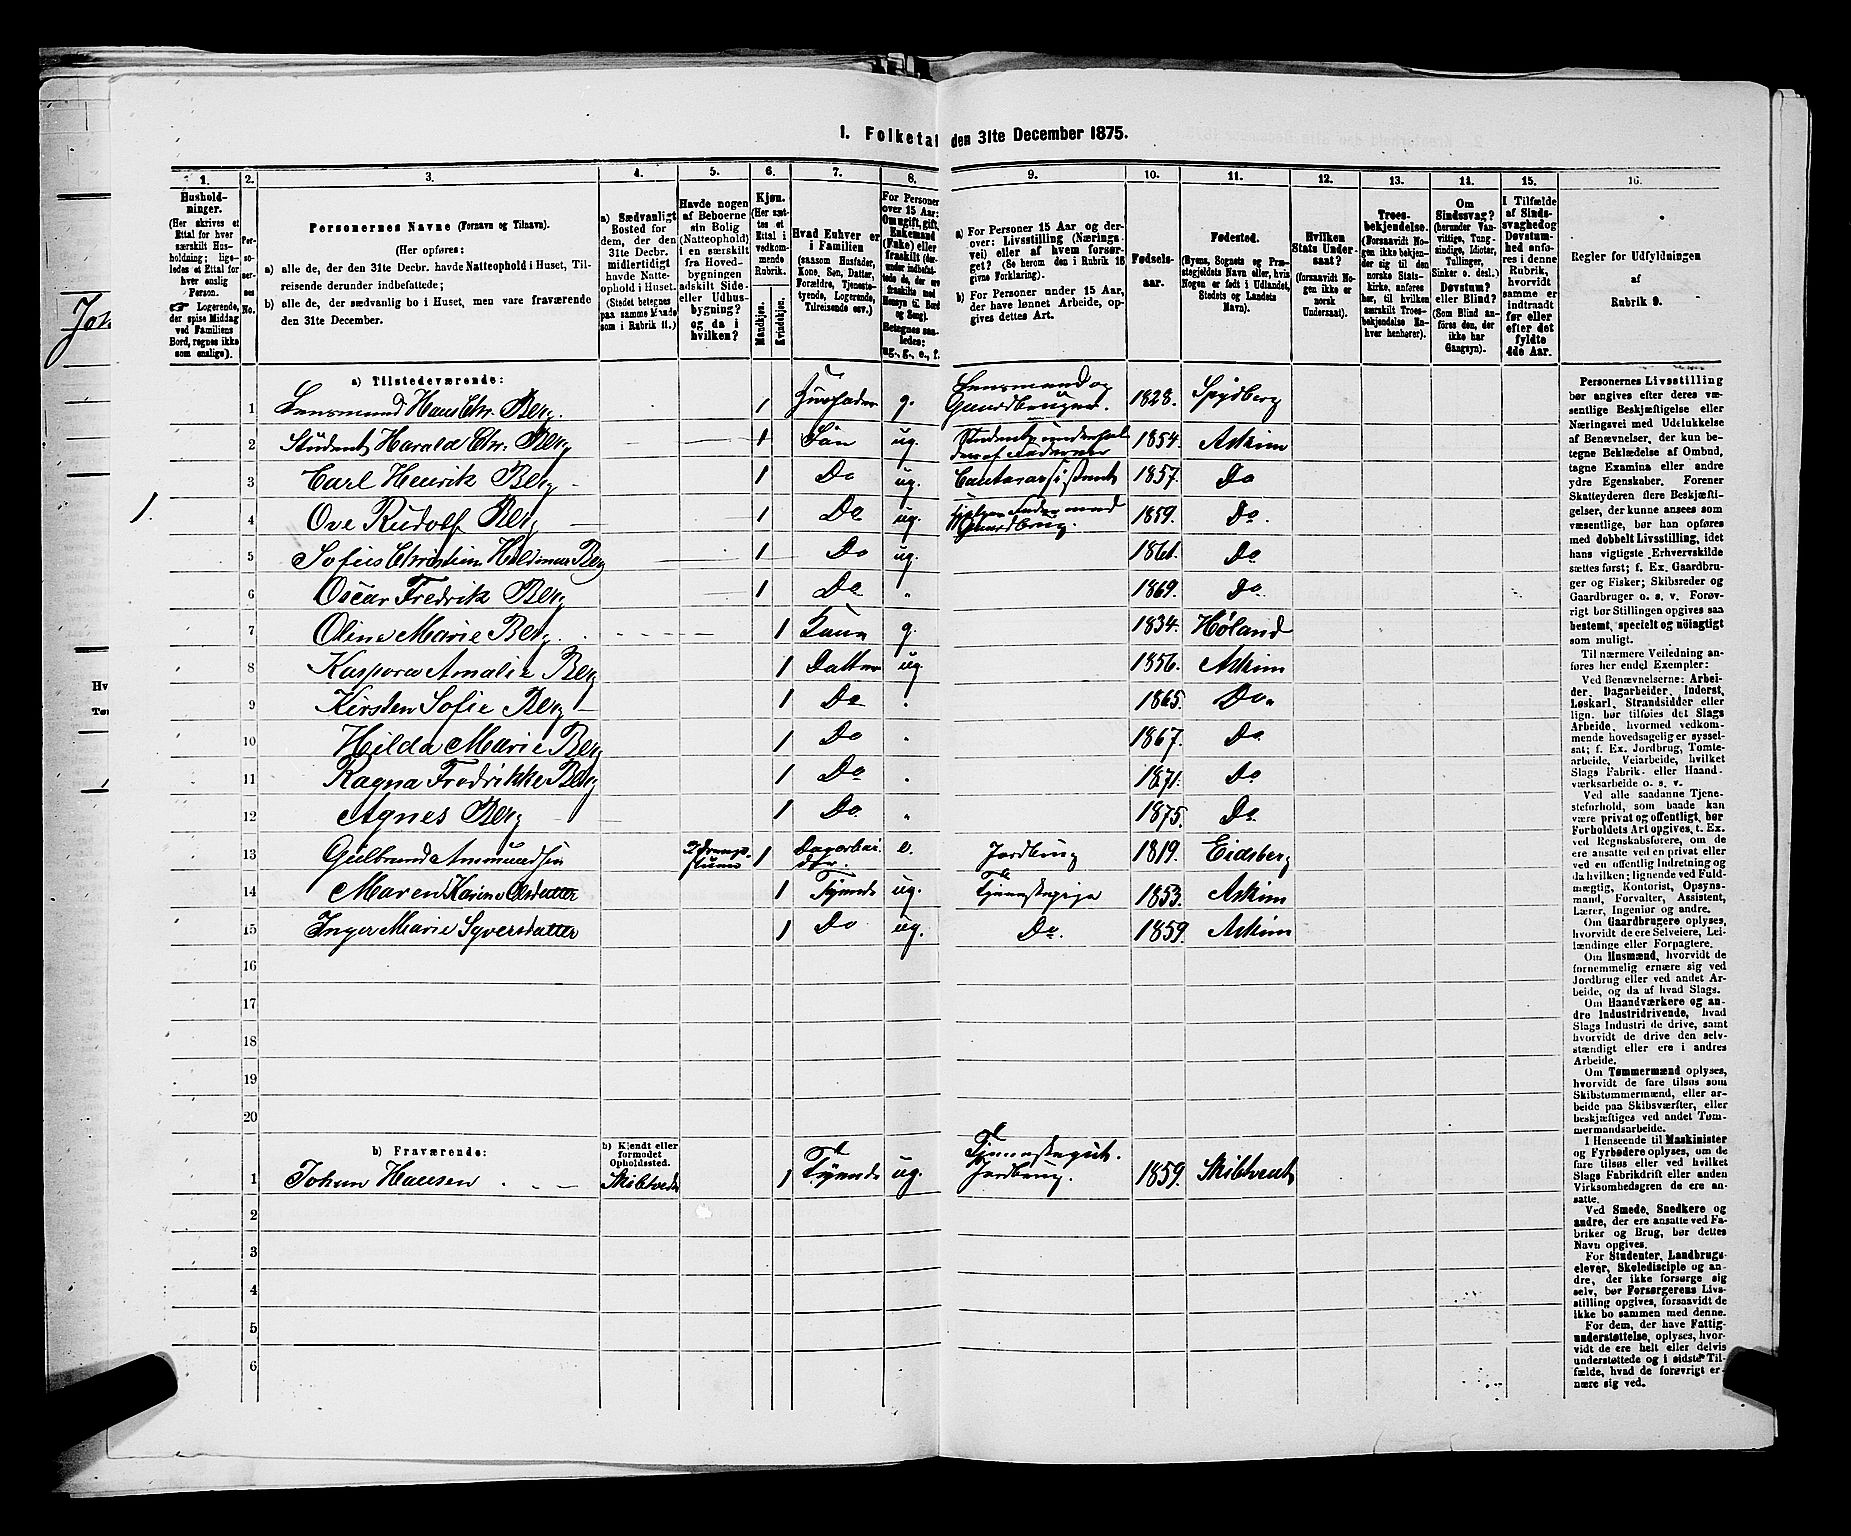 I. Folketal den 31te December 1875.
1. 2. 3. 4. 5. 6. 7. 8. 9. 10. 11. 12. 13. 14. 15. 16.
Husholdninger. (Her skrives et Ettal for hver særskilt Husholdning; ligeledes et Ettal for hver enslig Person. Logerende, der spise Middag ved Familiens Bord, regnes ikke som enslige).
Personernes No.
Personernes Navne (Fornavn og Tilnavn).
(Her opføres:
a) alle de, der den 31te Decbr. havde Natteophold i Huset, Tilreisende derunder indbefattede;
b) alle de, der sædvanlig bo i Huset, men vare fraværende den 31te December.
a) Sædvanligt Bosted for dem, der den 31te Decbr. midlertidigt havde Natteophold i Huset. (Stedet betegnes paa samme Maade som i Rubrik 11.)
Havde nogen af Beboerne sin Bolig (Natteophold) i en særskilt fra Hovedbygningen adskilt Side- eller Udhusbygning? og da i hvilken?
Kjøn. (Her sættes et Ettal i vedkommende Rubrik.
Mandkjøn. Kvindekjøn.
Hvad Enhver er i Familien (saasom Husfader, Kone, Søn, Datter, Forældre, Tjenestetyende, Logerende, Tilreisende osv.)
For Personer over 15 Aar: Om ugift, gift, Enkemand (Enke) eller fraskilt
Betegnes saaledes: ug., g., e., f.
a) For Personer 15 Aar og derover: Livsstilling (Næringsvei) eller af hvem forsørget? (Se herom den i Rubrik 16 givne Forklaring).
b) For Personer under 15 Aar, der have lønnet Arbeide, opgives dettes Art.
Fødselsaar.
Fødested. (Byens, Sognets og Præstegjeldets Navn eller, hvis Nogen er født i Udlandet, Stedets og Landets Navn).
Hvilken Stats Undersaat? (forsaavidt Nogen ikke er norsk Undersaat).
Troesbekjendelse. (Forsaavidt Nogen ikke bekjender sig til den norske Statskirke, anføres her, til hvilken særskilt Troesbekjendelse Enhver henhører).
Om Sindssvag? (herunder Vanvittige, Tungsindige, Idioter, Tullinger, Sinker o. desl.) Døvstum? eller Blind? (Som Blind anføres den, der ikke har Gangsyn).
I Tilfælde af Sindssvaghed og Døvstumhed anføres i denne Rubrik, hvorvidt samme er indtraadt før eller efter det fyldte 4de Aar.
Regler for Udfyldningen af Rubrik 9.
a) Tilstedeværende:
1 Lensmand Hans Chr. Berg. 1 Husfader g. Lensmand og Gaardbruger. 1828. Spydberg
2 Student Harald Chr. Berg 1 Søn ug. 1854. Askim
3 Carl Henrik Berg 1 Do ug. 1857. Do
1. 4 Ove Rudolf Berg 1 Do ug. 1859. Do.
5 Sofus Christian Berg 1 Do ug. 1861. Do
6 Oscar Fredrik Berg 1 Do " 1869. Do
7 Oline Marie Berg 1 Kone g. 1834. Høland
8 Kaspora Amalie Berg 1 Datter ug. 1856. Askim
9 Kirsten Sofie Berg 1 Do " 1865. Do.
10 Hilda Marie Berg 1 Do " 1867. Do
11 Ragna Fredrikke Berg 1 Do " 1871. Do
12 Agnes Berg 1 Do. " 1875. Do.
13 Gulbrand Ammundsen 1 e. Jordbrug 1819. Eidsberg
14 Maren Karine Olsdatter 1 Tyende ug. Tjenestepige 1853. Askim
15 Inger Marie Syversdatter 1 Do ug. Do. 1859. Askim
16
17
18
19
20
b) Fraværende: b) Kjendt eller formodet Opholdssted.
1 Johan Hansen Skibtvedt 1 Tyende ug. Jordbrug. 1859. Skibtvedt
2
3
4
5
6
Personernes Livsstilling bør angives efter deres væsentlige Beskjæftigelse eller Næringsvei med Udelukkelse af Benævnelser, der kun betegne Beklædelse af Ombud, tagne Examina eller andre ydre Egenskaber. Forener Skatteyderen flere Beskjæftigelser, der kunne ansees som væsentlige, bør han opføres med dobbelt Livsstilling, idet hans vigtigste Erhvervskilde sættes først; f. Ex. Gaardbruger og Fisker; Skibsreder og Gaardbruger o. s. v. Forøvrigt bør Stillingen opgives saa bestemt, specielt og nöiagtigt som muligt.
Til nærmere Veiledning anføres her endel Exempler:
Ved Benævnelserne: Arbeider, Dagarbeider, Inderst, Løskarl, Strandsidder eller lign. bør tilføies det Slags Arbeide, hvormed vedkommende hovedsagelig er sysselsat; f. Ex. Jordbrug, Tømtearbeide, Veiarbeide, hvilket Slags Fabrik- eller Haandværksarbeide o. s. v.
Ved alle saadanne Tjenesteforhold, som baade kan være privat og offentligt, bør Forholdets Art opgives, t. Ex. ved Regnskabsførere, om de ere ansatte ved en privat eller ved en offentlig Indretning og da hvilken; lignende ved Fuldmægtig, Kontorist, Opsynsmand, Forvalter, Assistent, Lærer, Ingeniør og andre.
Om Gaardbrugere oplyses, hvorvidt de ere Selveiere, Leilændinge eller Forpagtere.
Om Husmænd, hvorvidt de fornemmelig ernære sig ved Jordbrug eller ved andet Arbeide, og da af hvad Slags.
Om Haandværkere og andre Industridrivende, hvad Slags Industri de drive, samt hvorvidt de drive den selvstændigt eller ere i andres Arbeide.
Om Tømmermænd oplyses, hvorvidt de fare tilsøs som Skibstømmermænd, eller arbeide paa Skibsværfter, eller beskjæftiges ved andet Tømmermandsarbeide.
I Henseende til Maskinister og Fyrbødere oplyses, om de fare tilsøs eller ved hvilket Slags Fabrikdrift eller anden Virksomhedsgren de ere ansatte.
Ved Smede, Snedkere og andre, der ere ansatte ved Fabriker og Brug, bør dettes Navn opgives.
For Studenter, Landbrugselever, Skoledisciple og andre, der ikke forsørge sig selv, bør Forsørgerens Livsstilling opgives, forsaavidt de ikke bo sammen med denne.
For dem, der have Fattigunderstøttelse, oplyses, hvorvidt de ere helt eller delvis understøttede og i sidste Tilfælde, hvad de forøvrigt ernære sig ved.